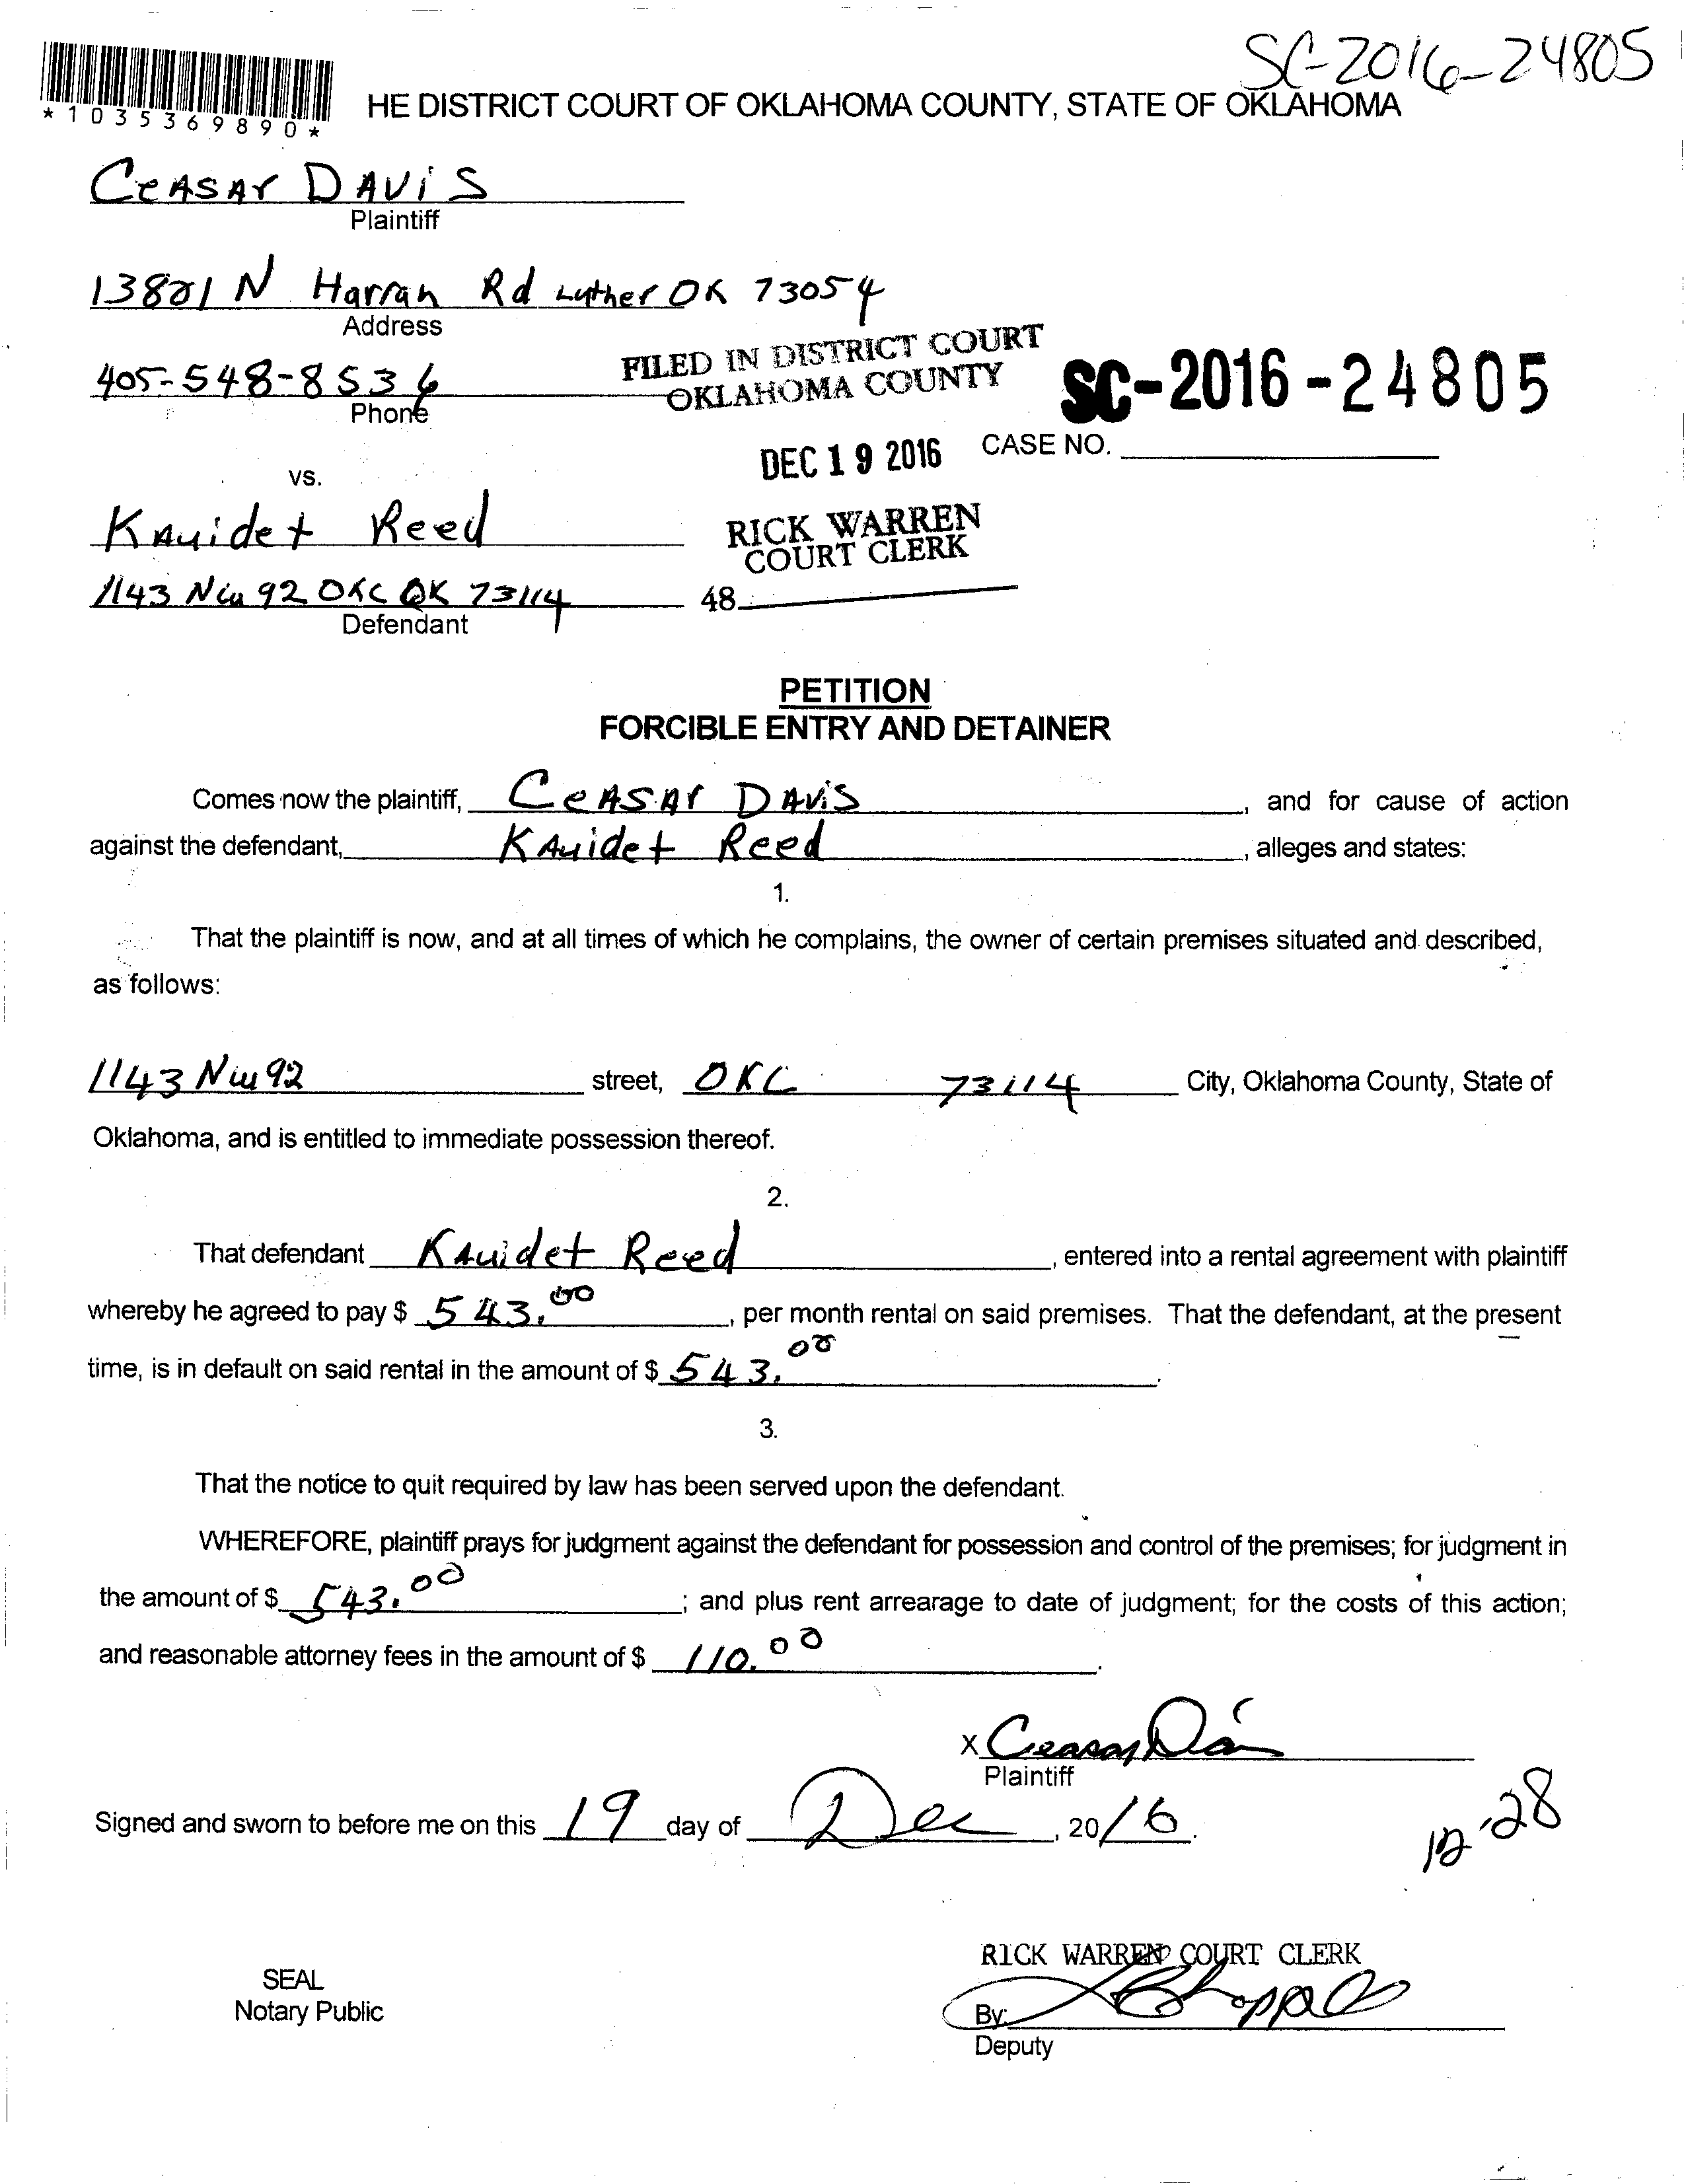 SC-2016-24805
*1035369890*
HE DISTRICT COURT OF OKLAHOMA COUNTY, STATE OF OKLAHOMA
CeASAr DAViS
Plaintiff
N Harrah Rd Luther OK 73054
Address
405-548-8536
Phone
FILED IN DISTRICT COURT
OKLAHOMA COUNTY
SC-2016-24805
DEC 19 2016
CASE NO.
vs.
KAuidet Reed
RICK WARREN
COURT CLERK
1143 NW 92 OKC OK 73114
48
Defendant
PETITION
FORCIBLE ENTRY AND DETAINER
Comes now the plaintiff, CeASAr DAViS, and for cause of action
against the defendant, KAuidet Reed, alleges and states:
1.
That the plaintiff is now, and at all times of which he complains, the owner of certain premises situated and described,
as follows:
1143 NW 92 street, OKC 73114 City, Oklahoma County, State of
Oklahoma, and is entitled to immediate possession thereof.
2.
That defendant KAuidet Reed, entered into a rental agreement with plaintiff
whereby he agreed to pay $ 543.00, per month rental on said premises. That the defendant, at the present
time, is in default on said rental in the amount of $ 543.00.
3.
That the notice to quit required by law has been served upon the defendant.
WHEREFORE, plaintiff prays for judgment against the defendant for possession and control of the premises; for judgment in
the amount of $ 543.00; and plus rent arrearage to date of judgment; for the costs of this action;
and reasonable attorney fees in the amount of $ 110.00.
X Ceasar Davis
Plaintiff
Signed and sworn to before me on this 19 day of Dec, 2016.
12-28
RICK WARREN COURT CLERK
SEAL
Notary Public
By:
Deputy